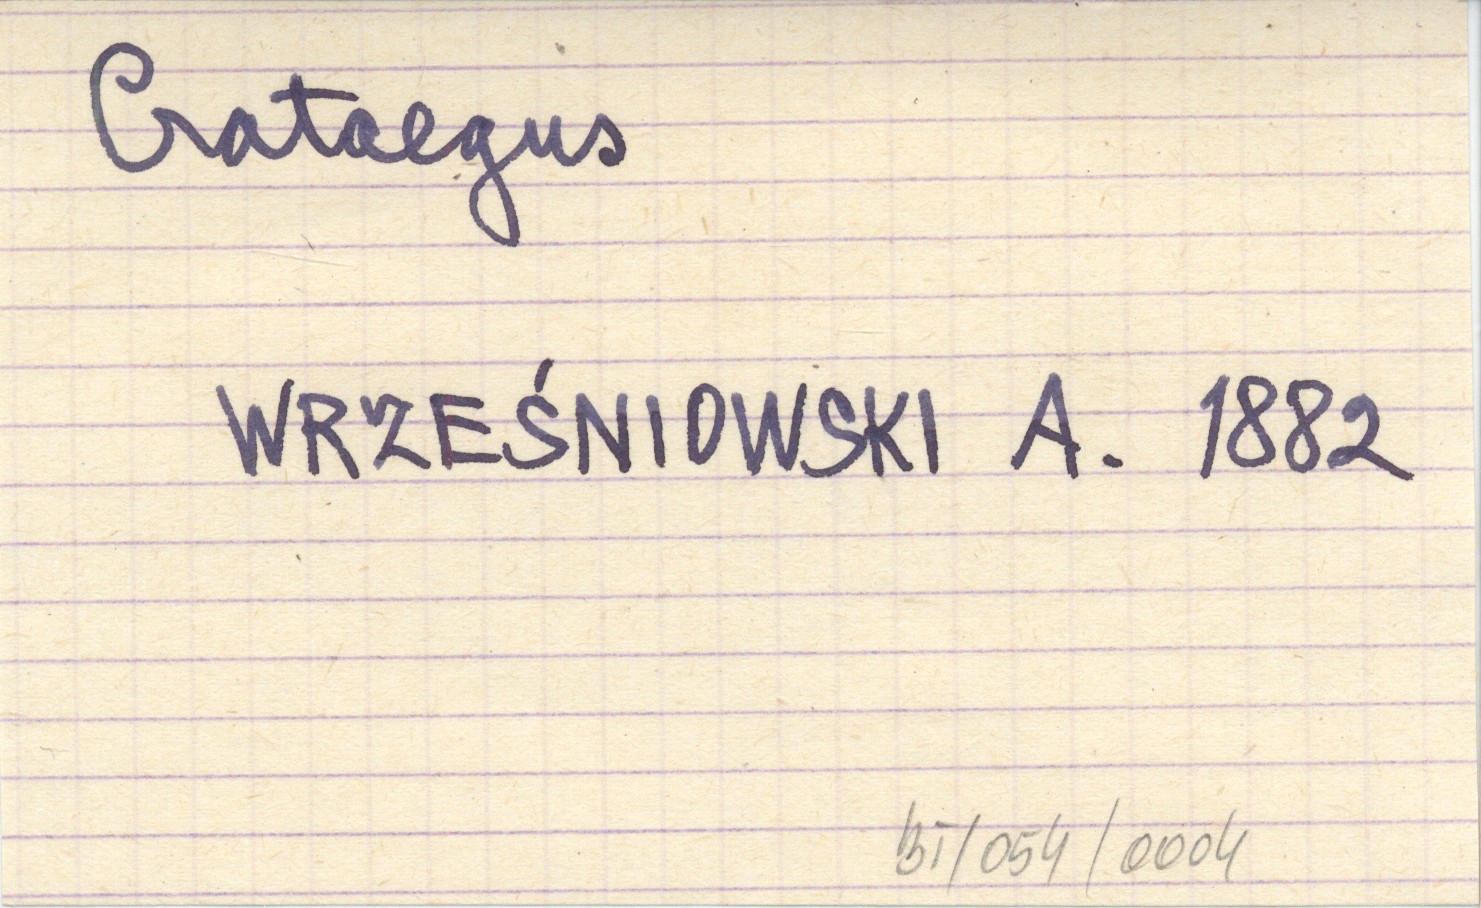 Crataegus
WRZEŚNIOWSKI A. 1882
BI/054/0004